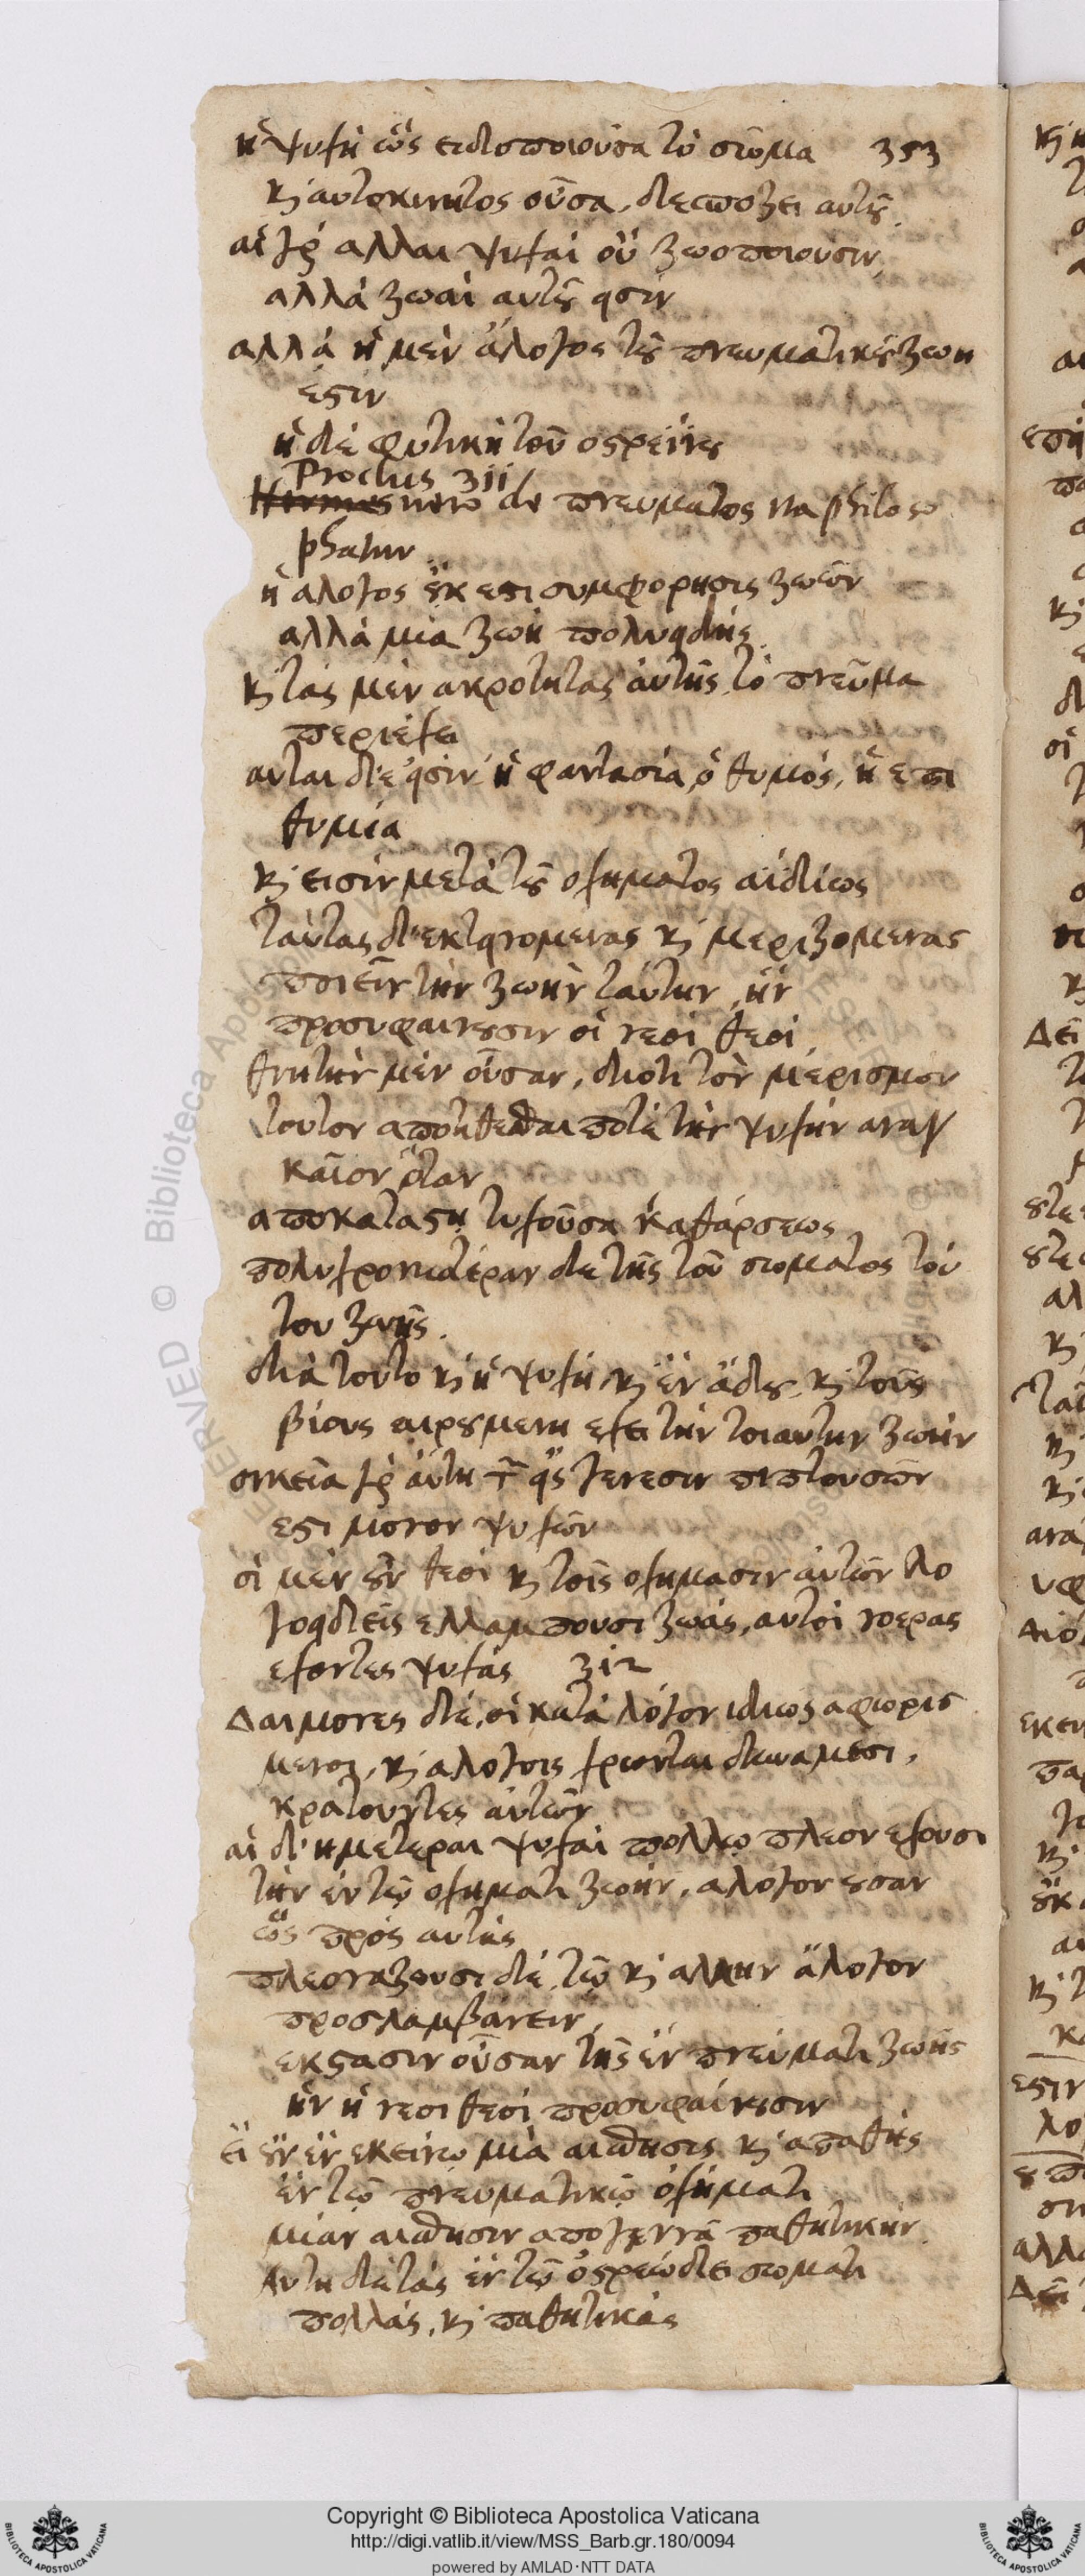 ἡ ψυχὴ ὡς ειδοποιοῦσα τὸ σῶμα 353
κ αυτοκινητος οὖσα, δεσποζει αυτȣ
αἱ γρ̀ αλλαι ψυχαὶ οὐ ζωοποιουσιν
αλλὰ ζωαὶ αυτȣ εισὶν
αλλὰ ἡ μὲν ἄλογος τȣ πνευματικȣ ζωη
ἐστὶν
ἡ δὲ φυτικὴ τοῦ οστρεΐνȣ
Proclus 311
vero de πνευματος ita philoso
phatur
ἡ αλογος ȣκ εστι συμφορησις ζωῶν
αλλὰ μία ζωὴ πολυειδὴς
κ τὰς μὲν ακροτητας ἀυτῆς τὸ πνεῦμα
περιέχει
αυται δέ εισὶν ἡ φαντασία, ὁ θυμός, ἡ επι
θυμία
κ εισὶν μετὰ τȣ οχηματος αϊδίως
ταύτας δ' εκτεινομένας κ μεριζομενας
ποιεῖν τὴν ζωὴν ταύτην, ἣν
προσυφαινȣσιν οἱ νεοι θεοι
θνητὴν μὲν οὖσαν, διοτι τὸν μερισμον
τουτον αποτιθεσθαι ποτὲ τὴν ψυχὴν αναγ
καῖον, ὅταν
αποκαταστῇ τυχοῦσα καθάρσεως
πολυχρονιωτέραν δε τῆς τοῦ σωματος τού
του ζωῆς.
διὰ τουτο κ ἡ ψυχὴ κ ἐν ἅδȣ κ τοὺς
βίους αιρȣμενη εχει τὴν τοιαυτην ζωὴν
οικεῖα γρ̀ ἁύτη τ̃ εἰς γενεσιν πιπτουσῶν
εστι μονον ψυχῶν
οἱ μὲν ȣν θεοὶ κ τοῖς οχημασιν ἀυτῶν λο
γοειδεῖς ελλαμπουσι ζωάς, αυτοὶ νοερας
εχοντες ψυχάς 312
Δαιμονες δὲ, οἱ κατὰ λόγον ιδιως αφωρισ
μενοι, κ αλογοις χρωνται δυναμεσι,
κρατουντες ἀυτῶν
αἱ δ' ημετεραι ψυχαὶ πολλῳ πλεον εχουσι
τὴν ἐν τῷ οχηματι ζωὴν, αλογον ȣσαν
ὡς πρὸς αυτὰς
πλεοναζουσι δὲ, τῷ κ αλλην ἄλογον
προσλαμβάνειν,
εκστασιν οὖσαν τῆς ἐν πνεύματι ζωῆς
ἣν ἡ νεοι θεοὶ προσυφαίνȣσιν
εἰ ȣν ἐν εκείνῳ μία αισθησις κ απαθὴς
ἐν τῷ πνευματικῷ ὀχήματι
μιαν αισθησιν απογεννᾶ παθητικὴν
Αυτη δὲ τὰς ἐν τῷ ὀστρεώδει σωματι
πολλὰς, κ παθητικὰς
Copyright © Biblioteca Apostolica Vaticana
http://digi.vatlib.it/view/MSS_Barb.gr.180/0094
powered by AMLAD·NTT DATA